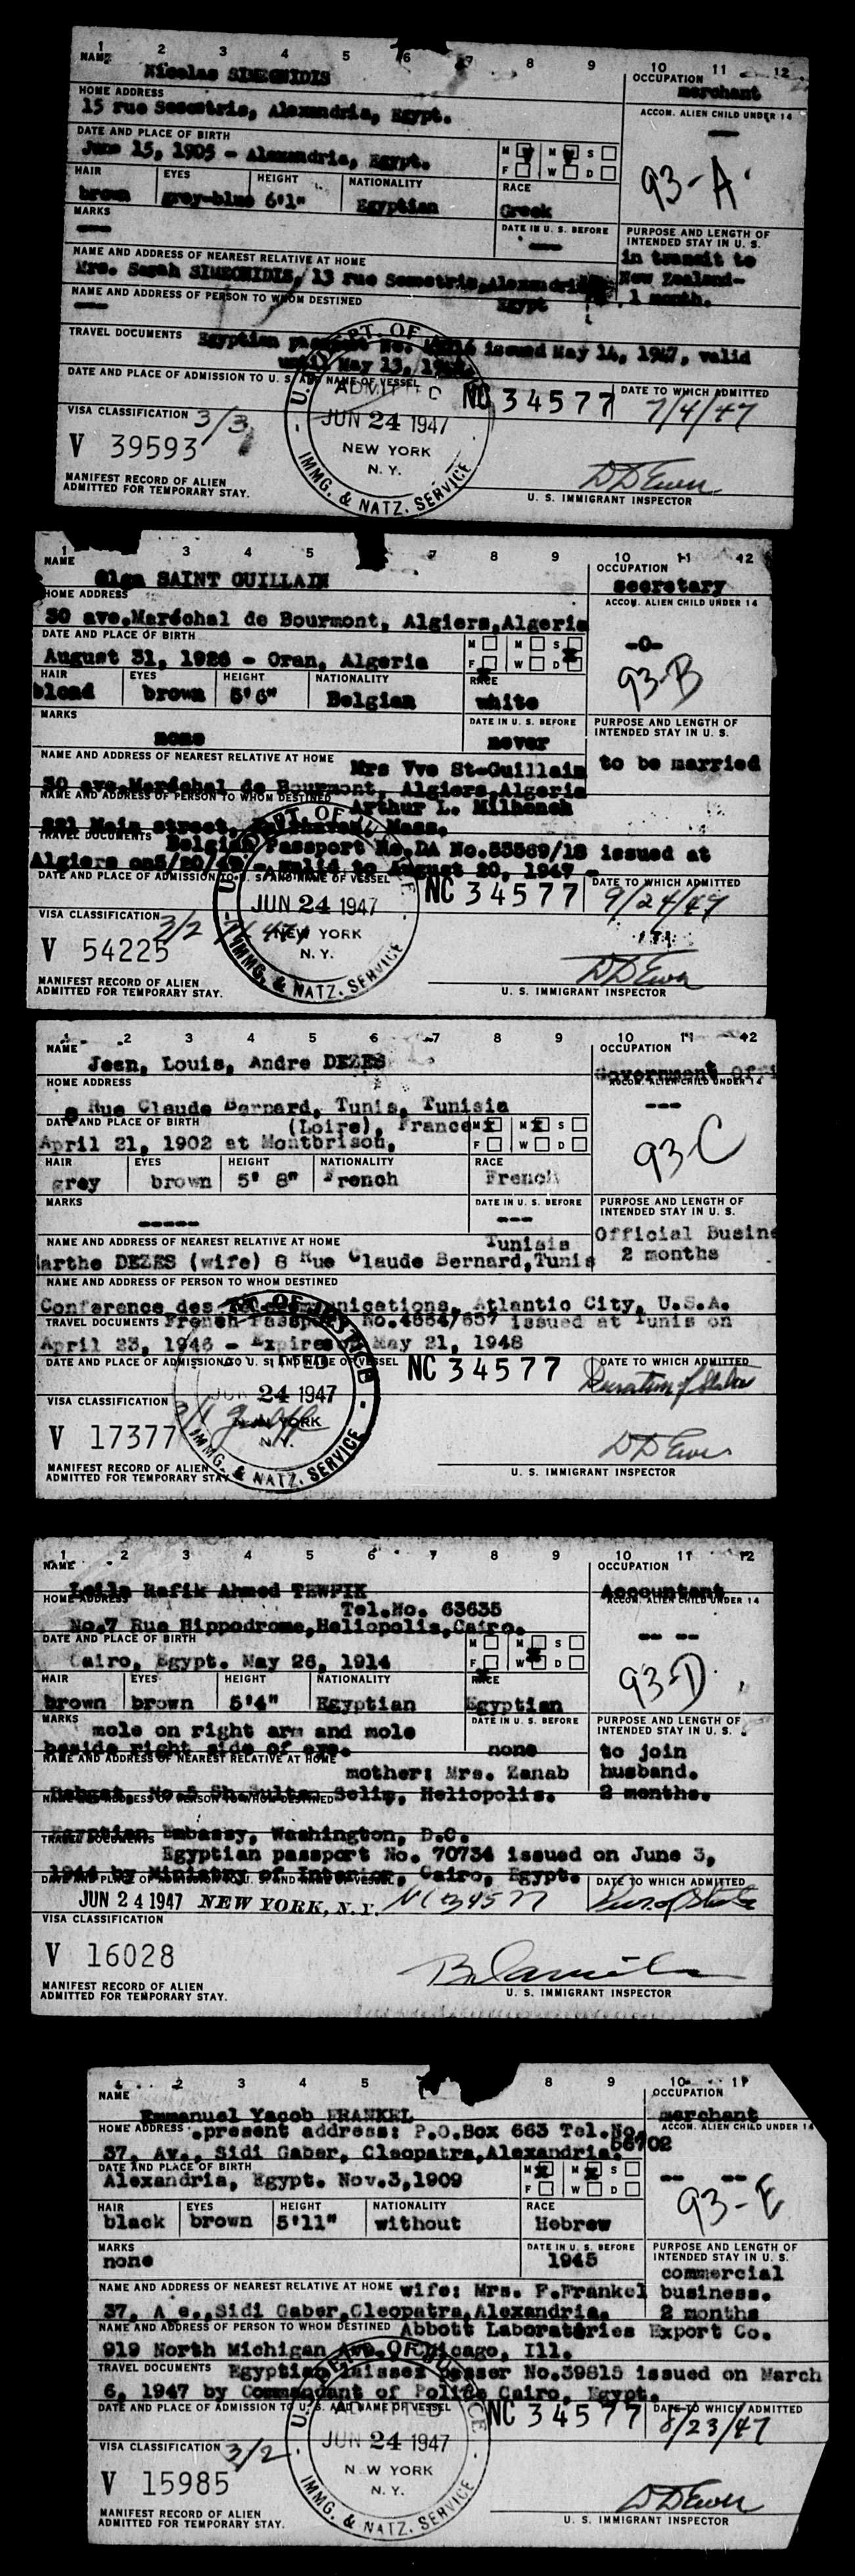 1 2 3 4 5 6 7 8 9 10 11 12
NAME Nicolas SIMEONIDIS OCCUPATION merchant
HOME ADDRESS ACCOM. ALIEN CHILD UNDER 14
15 rue Sesostris, Alexandria, Egypt. ---
DATE AND PLACE OF BIRTH
June 15, 1905 - Alexandria, Egypt. M M S F W D
93-A
HAIR EYES HEIGHT NATIONALITY RACE
brown grey-blue 6'1" Egyptian Greek
MARKS DATE IN U. S. BEFORE PURPOSE AND LENGTH OF INTENDED STAY IN U. S.
--- --- in transit to
NAME AND ADDRESS OF NEAREST RELATIVE AT HOME
Mrs. Sarah SIMEONIDIS, 13 rue Sesostris, Alexandria, New Zealand-
Egypt 1 month.
NAME AND ADDRESS OF PERSON TO WHOM DESTINED
---
TRAVEL DOCUMENTS Egyptian passport No. issued May 14, 1947, valid
until May 13,
DATE AND PLACE OF ADMISSION TO U. S. AND NAME OF VESSEL DATE TO WHICH ADMITTED
ADMITTED NC 34577 7/4/47
VISA CLASSIFICATION 3/3 JUN 24 1947
V 39593 NEW YORK N. Y.
IMMG. & NATZ. SERVICE
MANIFEST RECORD OF ALIEN ADMITTED FOR TEMPORARY STAY.
D D Ewer
U. S. IMMIGRANT INSPECTOR
1 3 4 5 7 8 9 10 11 12
NAME Olga SAINT GUILLAIN OCCUPATION secretary
HOME ADDRESS ACCOM. ALIEN CHILD UNDER 14
30 ave.Maréchal de Bourmont, Algiers,Algeria
DATE AND PLACE OF BIRTH
August 31, 1926 - Oran, Algeria M M S F W D
-0-
93-B
HAIR EYES HEIGHT NATIONALITY RACE
blond brown 5'6" Belgian white
MARKS DATE IN U. S. BEFORE PURPOSE AND LENGTH OF INTENDED STAY IN U. S.
none never
NAME AND ADDRESS OF NEAREST RELATIVE AT HOME Mrs Vve St-Guillain to be married
30 ave.Maréchal de Bourmont, Algiers,Algeria
NAME AND ADDRESS OF PERSON TO WHOM DESTINED Arthur L.
221 Main street, Mass.
TRAVEL DOCUMENTS Belgian Passport No.DA No.55569/18 issued at
Algiers - valid to August 20, 1947 -
DATE AND PLACE OF ADMISSION TO U. S. AND NAME OF VESSEL DATE TO WHICH ADMITTED
NC 34577 9/24/47
VISA CLASSIFICATION 3/2 JUN 24 1947
V 54225 NEW YORK N. Y.
IMMG. & NATZ. SERVICE
MANIFEST RECORD OF ALIEN ADMITTED FOR TEMPORARY STAY.
D D Ewer
U. S. IMMIGRANT INSPECTOR
1 2 3 4 5 6 7 8 9 10 11 12
NAME Jean, Louis, Andre DEZES OCCUPATION
HOME ADDRESS Government Offi
ACCOM. ALIEN CHILD UNDER 14
8 Rue Claude Bernard, Tunis, Tunisia ---
DATE AND PLACE OF BIRTH (Loire), France M M S
April 21, 1902 at Montbrison, F W D
93C
HAIR EYES HEIGHT NATIONALITY RACE
grey brown 5' 8" French French
MARKS DATE IN U. S. BEFORE PURPOSE AND LENGTH OF INTENDED STAY IN U. S.
----- ---
NAME AND ADDRESS OF NEAREST RELATIVE AT HOME Tunisia Official Busine
arthe DEZES (wife) 8 Rue Claude Bernard,Tunis 2 months
NAME AND ADDRESS OF PERSON TO WHOM DESTINED
Conference des Telecommunications, Atlantic City, U.S.A.
TRAVEL DOCUMENTS French Passport No.4664/657 issued at Tunis on
April 23, 1946 - Expires May 21, 1948
DATE AND PLACE OF ADMISSION TO U. S. AND NAME OF VESSEL NC 34577 DATE TO WHICH ADMITTED
Duration of Status
VISA CLASSIFICATION JUN 24 1947
V 17377 NEW YORK N.Y.
IMMG. & NATZ. SERVICE
MANIFEST RECORD OF ALIEN ADMITTED FOR TEMPORARY STAY
D D Ewer
U. S. IMMIGRANT INSPECTOR
1 2 3 4 5 6 7 8 9 10 11 12
NAME OCCUPATION
Leila Rafik Ahmed TEWFIK Accountant
HOME ADDRESS Tel.No. 63635 ACCOM. ALIEN CHILD UNDER 14
No.7 Rue Hippodrome,Heliopolis,Cairo.
DATE AND PLACE OF BIRTH -- --
Cairo, Egypt. May 26, 1914 M M S F W D
93-D
HAIR EYES HEIGHT NATIONALITY RACE
brown brown 5'4" Egyptian Egyptian
MARKS mole on right arm and mole DATE IN U. S. BEFORE PURPOSE AND LENGTH OF INTENDED STAY IN U. S.
beside right side of eye. none to join
NAME AND ADDRESS OF NEAREST RELATIVE AT HOME mother: Mrs. Zanab husband.
Bahgat, No.5 Sh.Sultan Selim, Heliopolis. 2 months.
NAME AND ADDRESS OF PERSON TO WHOM DESTINED
Egyptian Embassy, Washington, D.C.
TRAVEL DOCUMENTS Egyptian passport No. 70734 issued on June 3,
by Ministry of Interior, Cairo, Egypt.
DATE AND PLACE OF ADMISSION TO U. S. AND NAME OF VESSEL DATE TO WHICH ADMITTED
JUN 24 1947 NEW YORK, N.Y. NC 34577 Dur. of Status
VISA CLASSIFICATION
V 16028
MANIFEST RECORD OF ALIEN ADMITTED FOR TEMPORARY STAY.
U. S. IMMIGRANT INSPECTOR
1 2 3 4 5 8 9 10 11
NAME OCCUPATION
Emmanuel Yacob FRANKEL merchant
HOME ADDRESS present address: P.O.Box 663 Tel.No. ACCOM. ALIEN CHILD UNDER 14
37, Av., Sidi Gaber, Cleopatra,Alexandria. 56702
DATE AND PLACE OF BIRTH
Alexandria, Egypt. Nov.3,1909 M M S F W D
-- --
93-E
HAIR EYES HEIGHT NATIONALITY RACE
black brown 5'11" without Hebrew
MARKS DATE IN U. S. BEFORE PURPOSE AND LENGTH OF INTENDED STAY IN U. S.
none 1945 commercial
NAME AND ADDRESS OF NEAREST RELATIVE AT HOME wife: Mrs. F.Frankel business.
37, A e.,Sidi Gaber,Cleopatra,Alexandria. 2 months
NAME AND ADDRESS OF PERSON TO WHOM DESTINED Abbott Laboratories Export Co.
919 North Michigan Ave. Chicago, Ill.
TRAVEL DOCUMENTS Egyptian laissez passer No.39815 issued on March
6, 1947 by Commandant of Police Cairo, Egypt.
DATE AND PLACE OF ADMISSION TO U. S. AND NAME OF VESSEL NC 34577 DATE TO WHICH ADMITTED
8/23/47
VISA CLASSIFICATION 3/2 JUN 24 1947
V 15985 N W YORK N. Y.
IMMG. & NATZ. SERVICE
MANIFEST RECORD OF ALIEN ADMITTED FOR TEMPORARY STAY.
D D Ewer
U. S. IMMIGRANT INSPECTOR